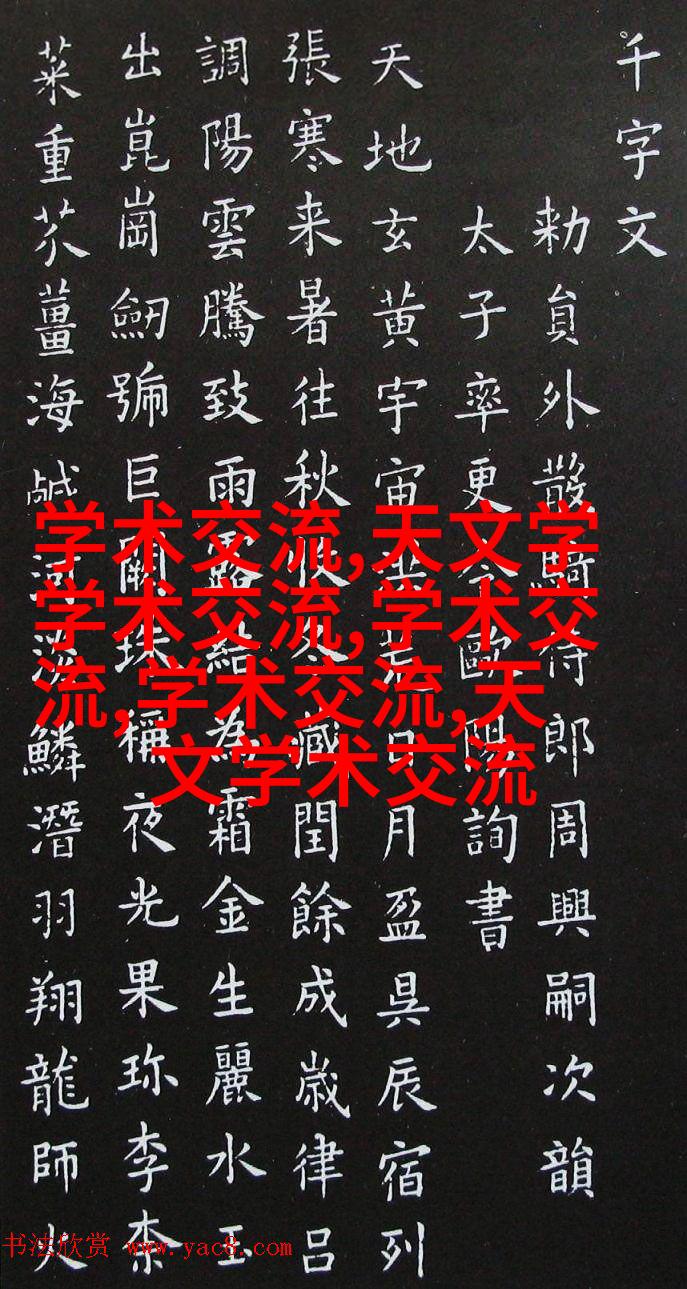 千字文
勑員外散騎侍郎周興嗣次韻
太子率更令歐陽詢書
天地玄黃宇宙洪荒日月盈昃辰宿列
張寒来暑往秋收冬藏閏餘成歲律呂
調陽雲騰致雨露結為霜金生麗水玉
出崑崗劒號巨闕珠稱夜光果珎李柰
菜重芥薑海鹹河淡鱗潛羽翔龍師火
学术交流,天文学
学术交流,学术交
流,学术交流,天
文学术交流
书法欣赏 www.yac8.com